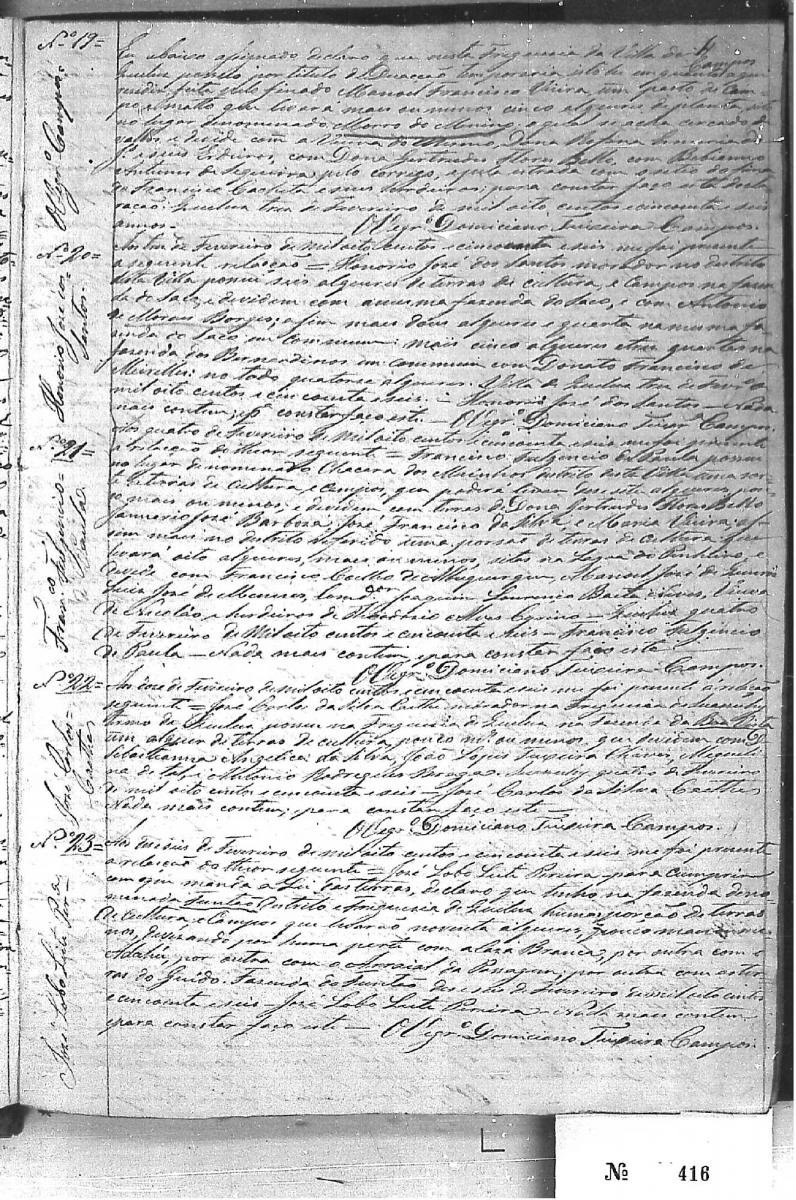 Nº 19=
O Vigrº Campos.
Eu abaixo assignado declaro que nesta Freguesia da Villa de
Campos
Queluz possuo por titulo de Doacção temporaria
feita pelo finado Manoel Francisco Vieira, um pasto de Cam-
po e matto que levará mais ou menos cinco alqueires de planta, sito
no lugar denominado Morro do Menino, o qual se acha cercado de
vallos e divide com a Viuva do mesmo, Dona
e seus Erdeiros, com Dona Gertrudes Flora Bello, com Bibianno
Antunes de Siqueira pelo corrego, e pela estrada com o sitio do fina-
do Francisco e seus herdeiros; para constar faço esta decla-
ração. Queluz trez de Fevereiro de mil oito centos e cincoenta e seis
annos. — O Vigrº Domiciano Teixeira Campos.
Nº 20=
Honorio José dos
Santos.
Aos trez de Fevereiro de mil oito centos e cincoenta e seis me foi presente
a seguinte relação = Honorio José dos Santos morador no destrito
desta Villa possue seis alqueires de terras de cultura, e Campos na fasen-
da do Saco, e dividem com a mesma fazenda do Saco, e com Antonio
de Moraes Borges; assim mais dous alqueires e quarta na mesma fa-
zenda do Saco em commum: mais cinco alqueires e trez quartas na
fazenda dos Bernardinos em commum com Donato Francisco de
Meirelles: no todo quatorse alqueires. Villa de Queluz trez de Fevrº de
mil oito centos e cincoenta e seis. — Honorio José dos Santos — Nada
mais contem; e pª constar faço este. — O Vigrº Domiciano Teixrª Campos.
Nº 21=
Franco Fulgencio=
de Paula
Aos quatro de Fevereiro de mil oito centos e cincoenta e seis me foi presente
a relação do theor seguinte = Francisco Fulgencio de Paula possue
no lugar denominado Chacara dos Moinhos destrito desta Villa uma sor-
te de terras de cultura e campos, que poderá levar dezesete alqueires, pou-
co mais ou menos, e dividem com terras de Dona Gertrudes Flora Bello
Januario José Barboza, José Francisco da Silva, e Maria Vieira, as-
sim mais no destrito referido uma porsão de terras de Cultura que
levará oito alqueires, mais ou menos, sitas na
divide com Francisco Coelho de Albuquerque, Manoel José de
Luis José de Menezes, Joaquim Lourenço Baeta Neves, Viuva
de Nicoláo e herdeiros de Theodosio Alves Cyrino — Queluz quatro
de Fevereiro de Mil oito centos e cincoenta e seis — Francisco Fulgencio
de Paula — Nada mais contem, e para constar faço este —
O Vigrº Domiciano Teixeira Campos.
Nº 22=
José Carlos=
Coelho
Aos doze de Fevereiro de mil oito centos e cincoenta e seis me foi presente a relação
seguinte = José Carlos da Silva Coelho morador na Freguesia de
termo de Queluz possue na Freguesia de Queluz na fasenda da Boa Vista
um alqueire de terras de cultura, pouco mais ou menos, que dividem com D.
Sebastianna Angelica da Silva, João Lopes Teixeira Chaves,
Antonio Rodregues quatro de Fevereiro
de mil oito centos e cincoenta e seis — José Carlos da Silva Coelho
Nada mais contem; para constar faço este —
O Vigrº Domiciano Teixeira Campos.
Nº 23=
José Lobo Leite Per-
rª
Aos deseseis de Fevereiro de mil oito centos e cincoenta e seis me foi presente
a relação do theor seguinte = José Lobo Leite Pereira para cumprir
com o que manda a Lei das terras, declaro que tenho na fazenda deno-
minada Destrito e Freguesia de Queluz huma porção de terras
de Cultura, e Campos que levarão noventa alqueires, pouco mais ou me-
nos, devizando por huma parte com a Caza Branca, por outra com
por outra com o da Passagem, por outra com as ter-
ras do Guido. Fazenda do deseseis de Fevereiro de mil oito centos
e cincoenta e seis — José Lobo Leite Pereira — Nada mais contem
e para constar faço este — O Vigrº Domiciano Teixeira Campos.
Nº 416